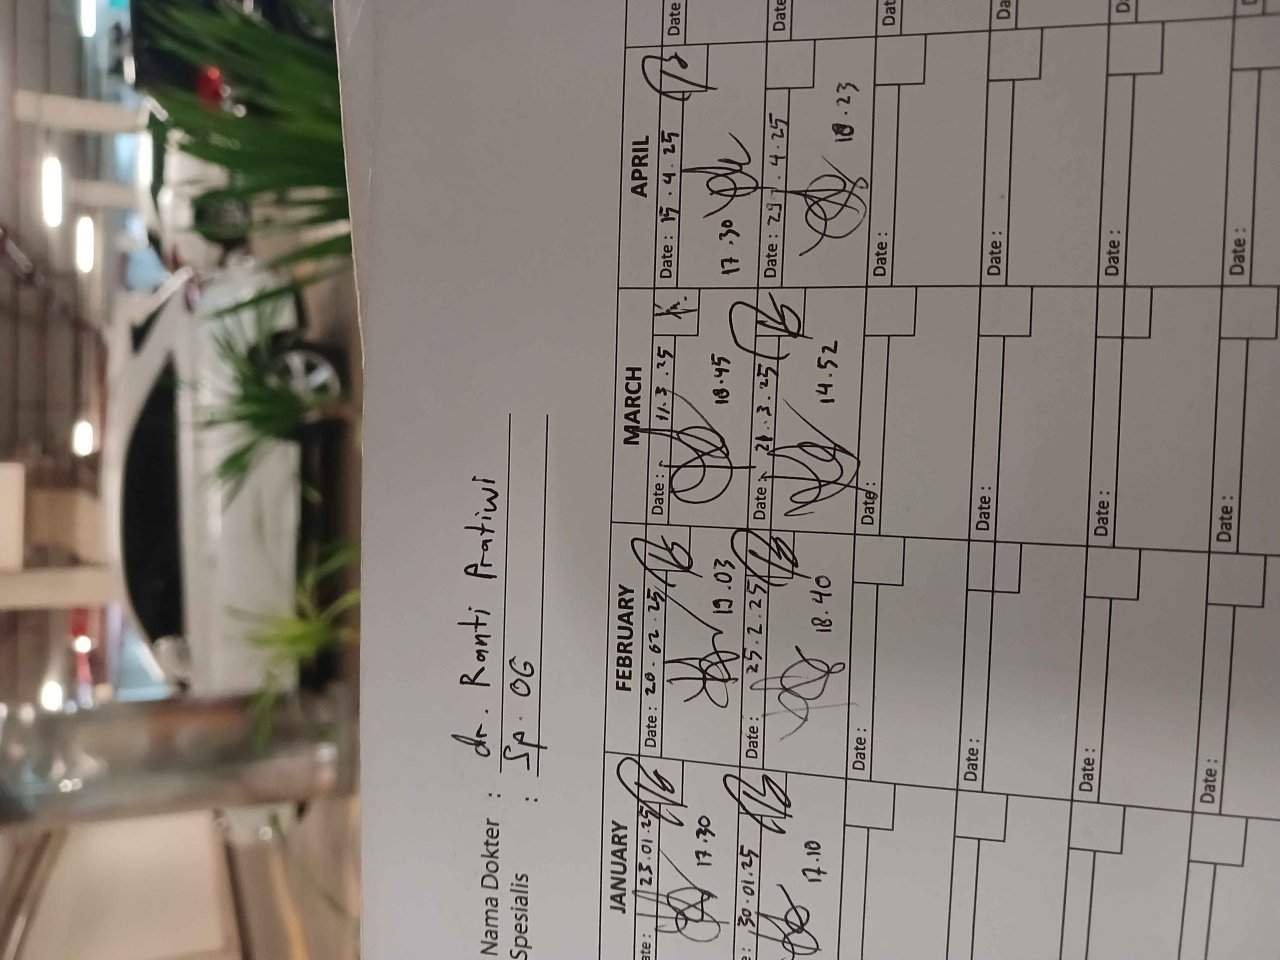 Nama Dokter : dr. Ranti Pratiwi
Spesialis : Sp. OG
JANUARY FEBRUARY MARCH APRIL
ate: 23.01.25 Date: 20.02.25 Date: 11.3.25 Date: 15.4.25 Date
17.30 19.03 18.45 17.30
e: 30.01.25 Date: 25.2.25 Date: 21.3.25 Date: 29.4.25 Date
17.10 18.40 14.52 18.23
Date: Date: Date: Dat
Date: Date: Date: Da
Date: Date: Date: D
Date: Date: Date: